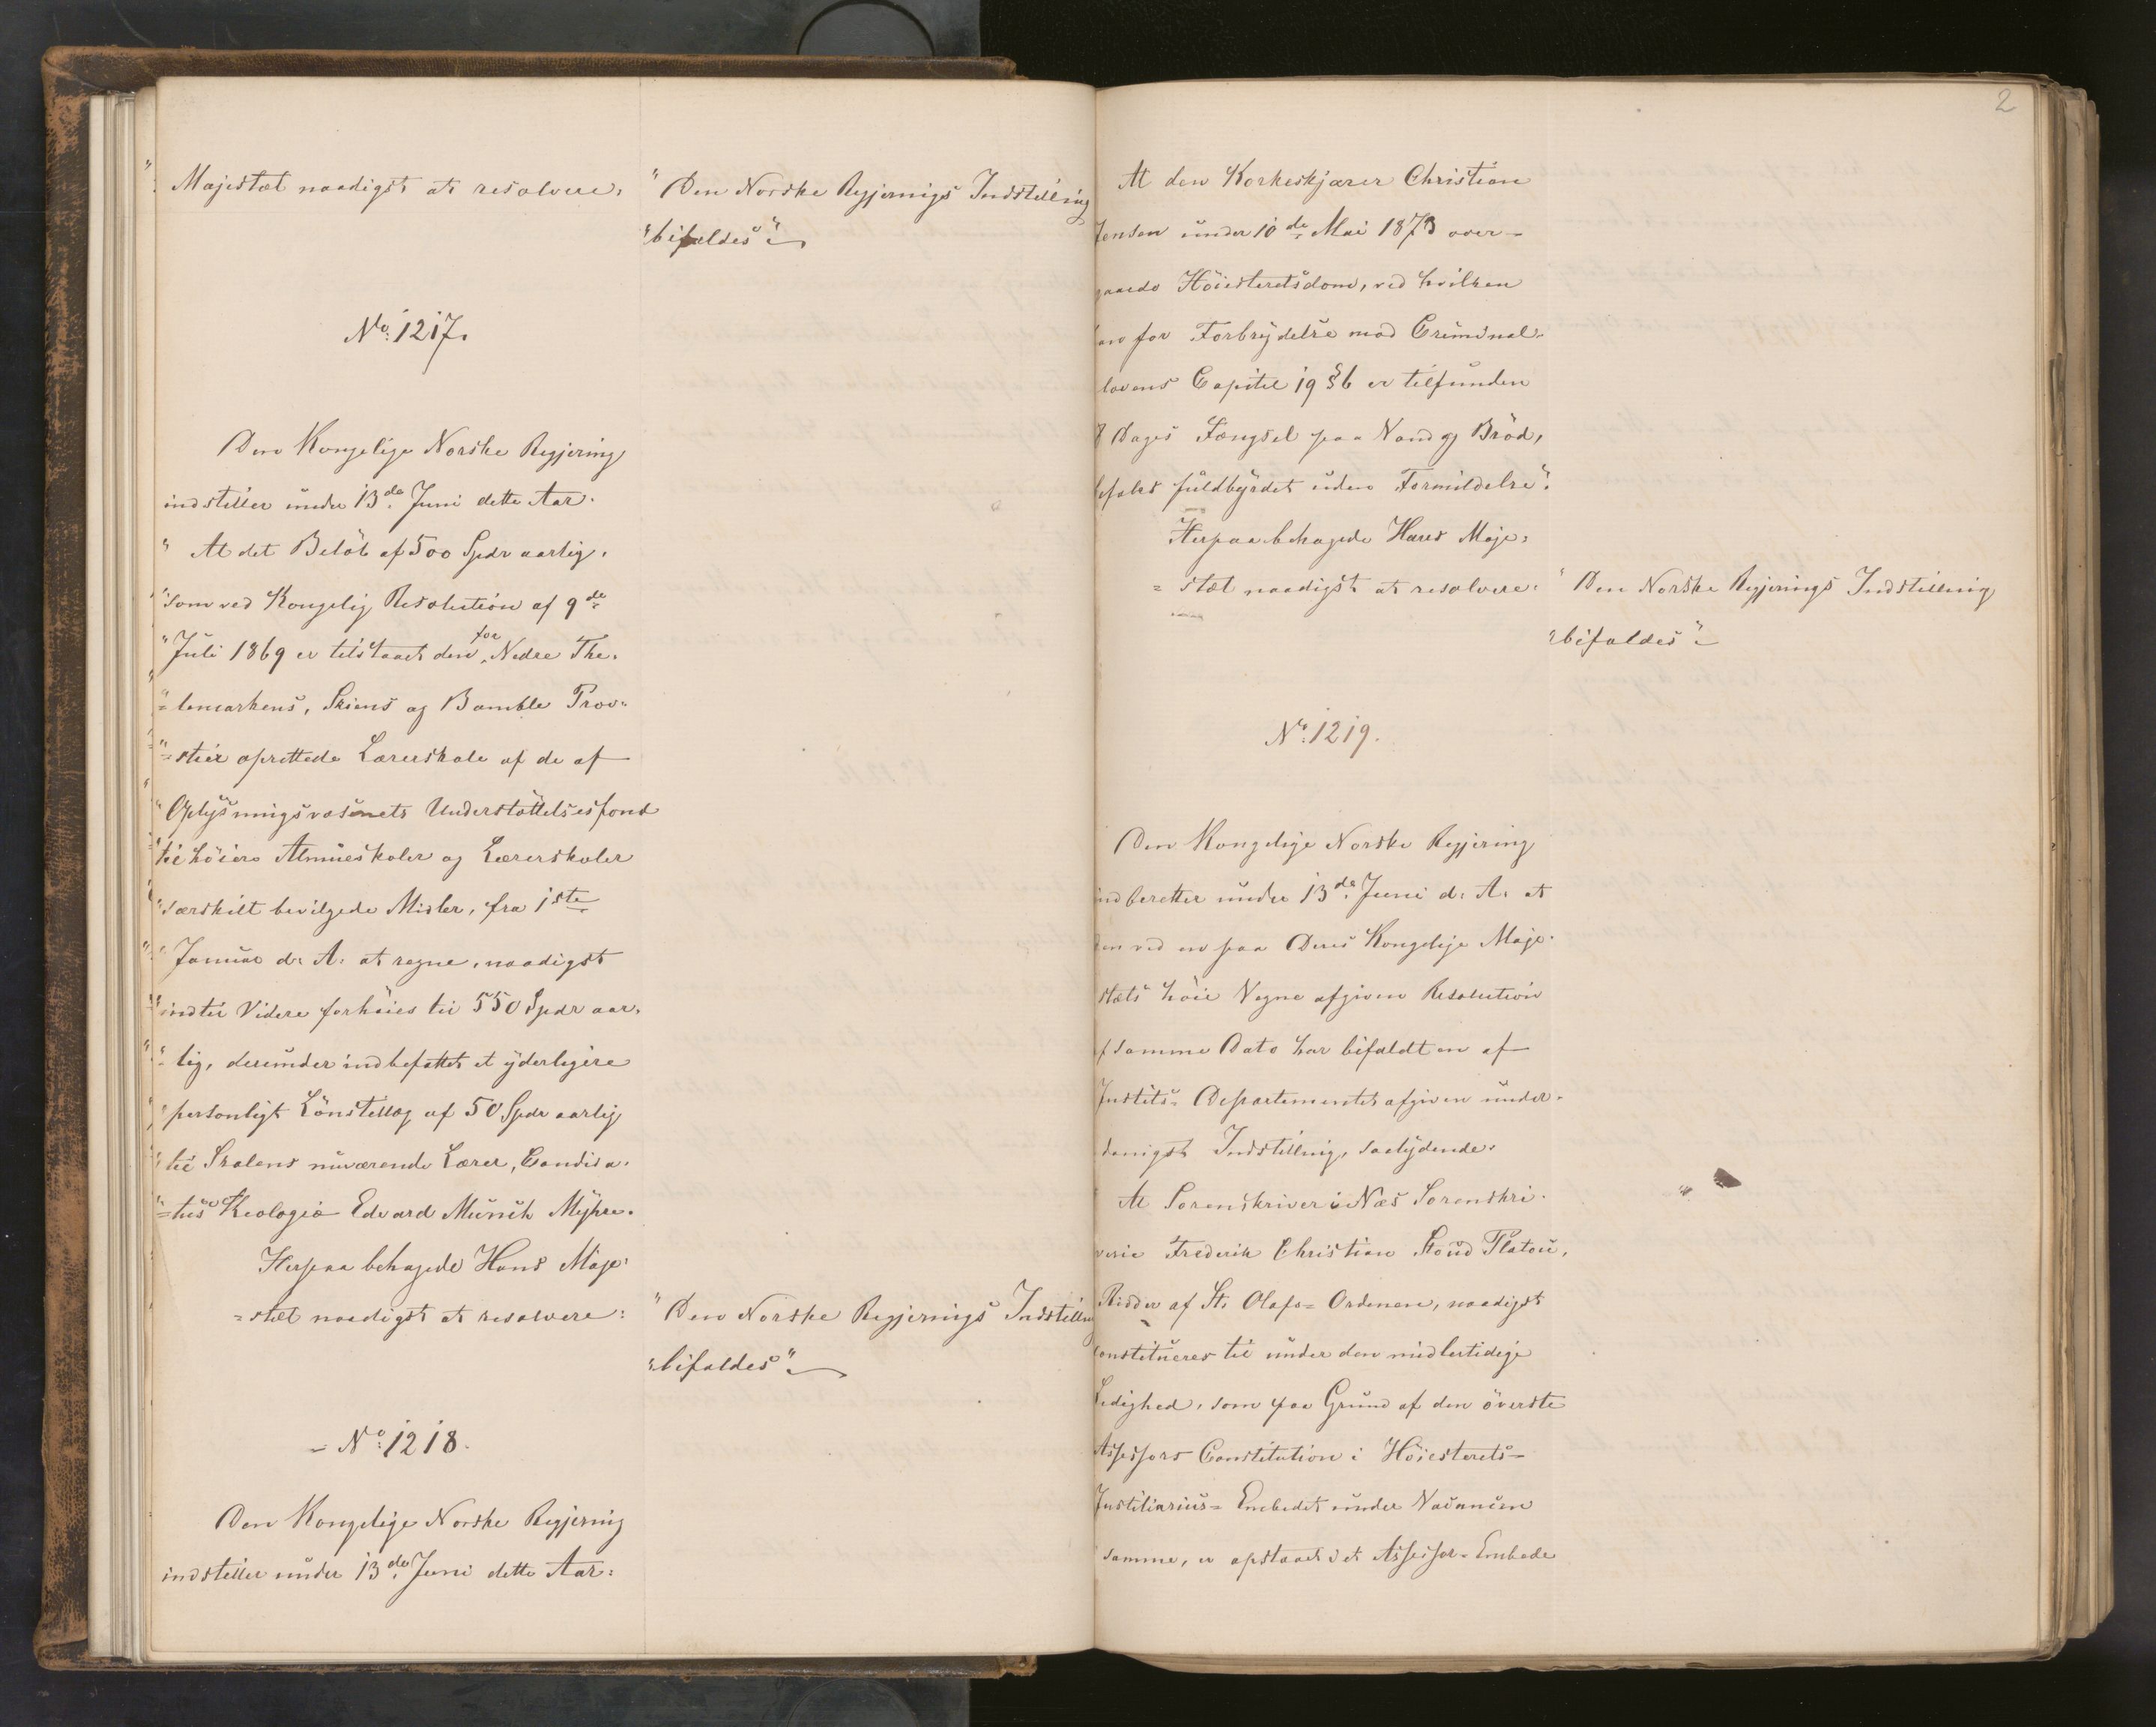 Majestæt naadigst at resolvere: "Den Norske Regjerings Indstilling
"bifaldes".
No. 1217.
Den Kongelige Norske Regjering
indstiller under 13de Juni dette Aar:
" At det Beløb af 500 Spdr aarlig,
"som ved Kongelig Resolution af 9de
"Juli 1869 er tilstaaet den for Nedre The-
"=lemarkens, Skiens og Bamble Prov-
"=stier oprettede Lærerskole af de af
"Oplysningsvæsenets Understøttelsesfond
"til høiere Almueskoler og Lærerskoler
"særskilt bevilgede Midler, fra 1ste
"Januar d: A: at regne, naadigst
"indtil Videre forhøies til 550 Spdr aar-
"=lig, derunder indbefattet et yderligere
"personligt Lønstillæg af 50 Spdr aarlig
"til Skolens nuværende Lærer, Candida-
"=tus theologiæ Edvard Munch Myhre.
Herpaa behagede Hans Maje-
=stæt naadigst at resolvere: "Den Norske Regjerings Indstilling
"bifaldes".
- No. 1218.
Den Kongelige Norske Regjering
indstiller under 13de Juni dette Aar:
2
At den Korkeskjærer Christian
Jensen under 10de Mai 1873 over-
gaaede Høiesteretsdom, ved hvilken
han for Forbrydelse mod Criminal-
lovens Capitel 19 § 6 er tilfunden
8 Dages Fængsel paa Vand og Brød,
befales fuldbyrdet uden Formildelse".
Herpaa behagede Hans Maje-
=stæt naadigst at resolvere: "Den Norske Regjerings Indstilling
"bifaldes".
No. 1219.
Den Kongelige Norske Regjering
indberetter under 13de Juni d: A: at
den ved en paa Deres Kongelige Maje-
stæts høie Vegne afgiven Resolution
af samme Dato har bifaldt en af
Justits-Departementet afgiven under-
danigst Indstilling, saalydende:
At Sorenskriver i Næs Sorenskri-
verie Frederik Christian Stoud Platou,
Ridder af St. Olafs=Ordenen, naadigst
constitueres til under den midlertidige
Ledighed, som paa Grund af den øverste
Assessors Constitution i Høiesterets=
Justitiarius=Embedet under Vacancen
samme, er opstaaet i et Assessor=Embede